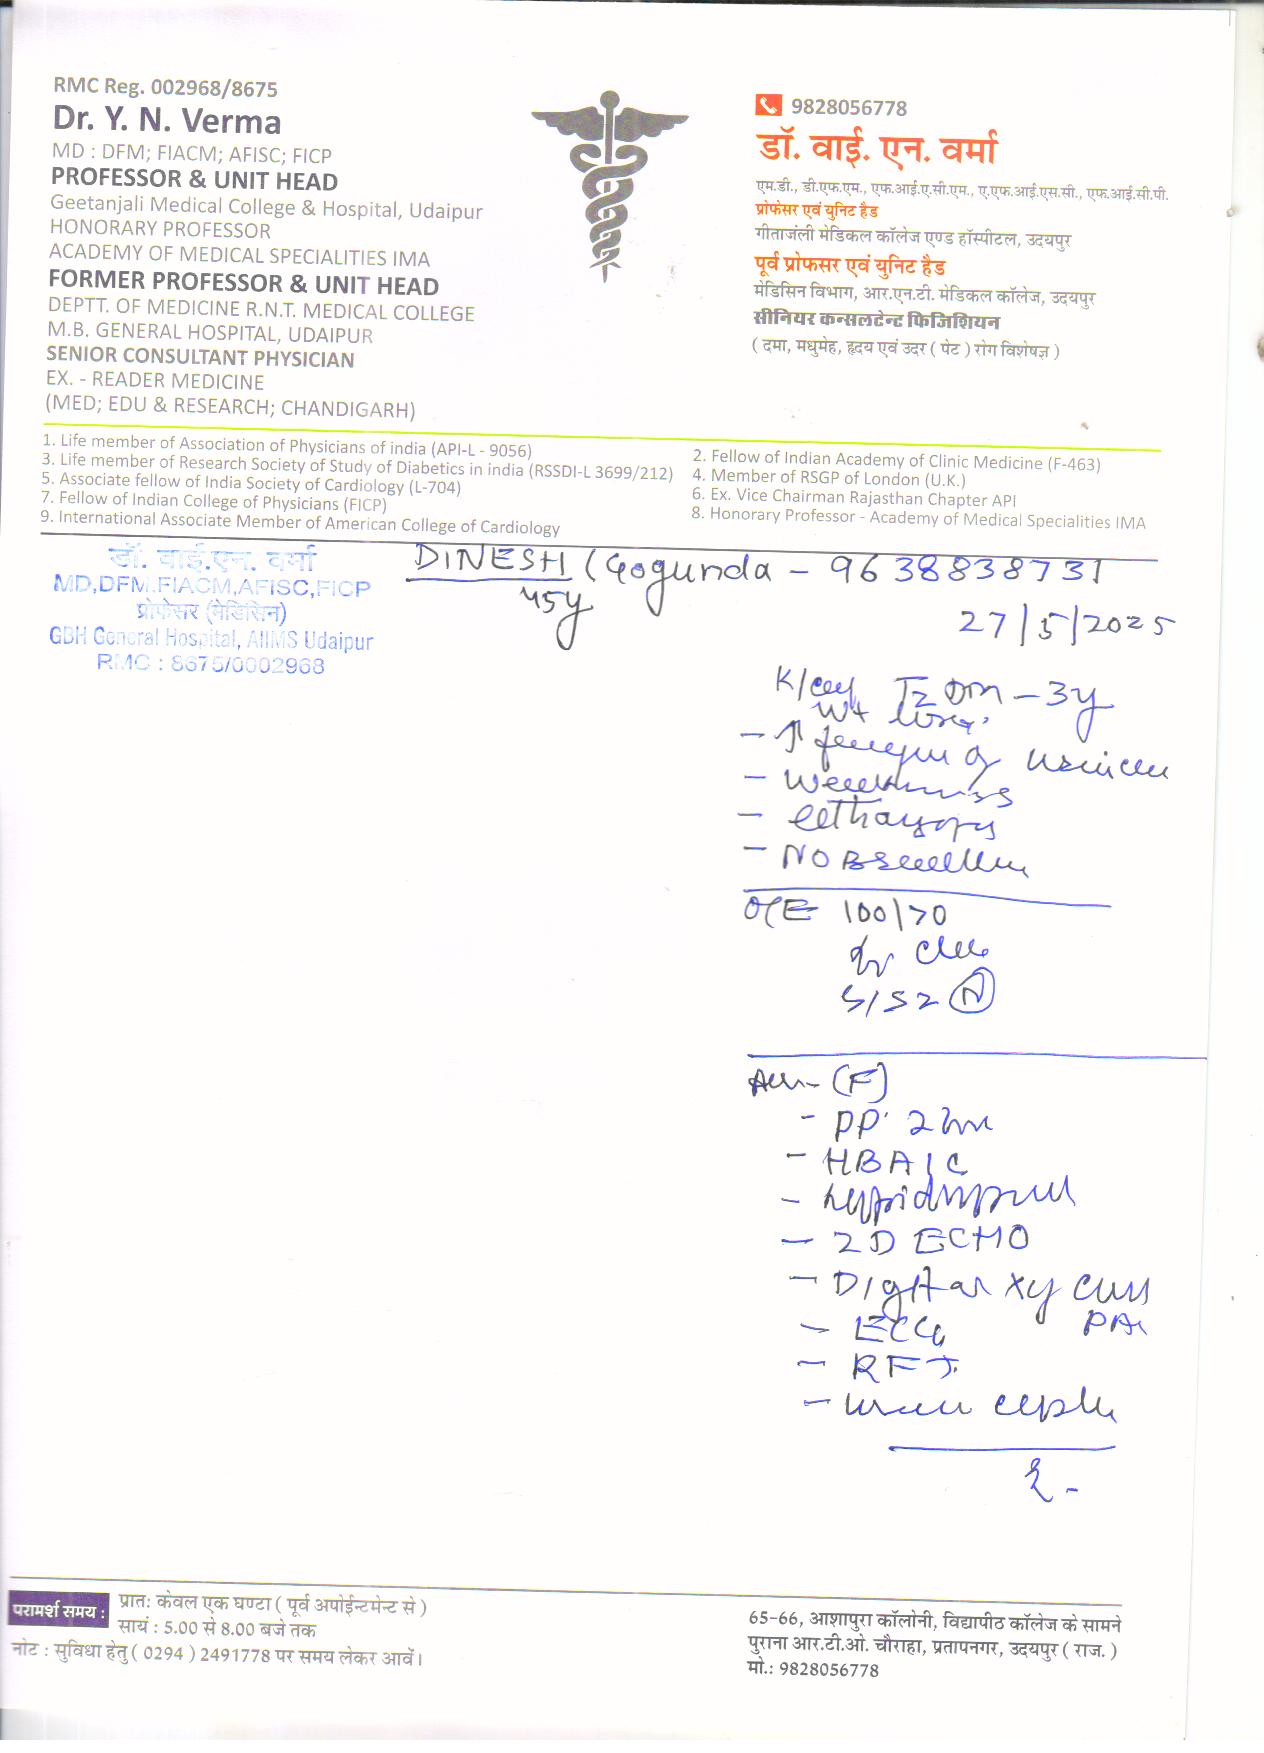 RMC Reg. 002968/8675
Dr. Y. N. Verma
MD : DFM; FIACM; AFISC; FICP
PROFESSOR & UNIT HEAD
Geetanjali Medical College & Hospital, Udaipur
HONORARY PROFESSOR
ACADEMY OF MEDICAL SPECIALITIES IMA
FORMER PROFESSOR & UNIT HEAD
DEPTT. OF MEDICINE R.N.T. MEDICAL COLLEGE
M.B. GENERAL HOSPITAL, UDAIPUR
SENIOR CONSULTANT PHYSICIAN
EX. - READER MEDICINE
(MED; EDU & RESEARCH; CHANDIGARH)
9828056778
डॉ. वाई. एन. वर्मा
एम.डी., डी.एफ.एम., एफ.आई.ए.सी.एम., ए.एफ.आई.एस.सी., एफ.आई.सी.पी.
प्रोफेसर एवं युनिट हैड
गीताजंली मेडिकल कॉलेज एण्ड हॉस्पीटल, उदयपुर
पूर्व प्रोफसर एवं युनिट हैड
मेडिसिन विभाग, आर.एन.टी. मेडिकल कॉलेज, उदयपुर
सीनियर कन्सलटेन्ट फिजिशियन
( दमा, मधुमेह, हृदय एवं उदर ( पेट ) रोग विशेषज्ञ )
1. Life member of Association of Physicians of india (API-L - 9056)
2. Fellow of Indian Academy of Clinic Medicine (F-463)
3. Life member of Research Society of Study of Diabetics in india (RSSDI-L 3699/212)
4. Member of RSGP of London (U.K.)
5. Associate fellow of India Society of Cardiology (L-704)
6. Ex. Vice Chairman Rajasthan Chapter API
7. Fellow of Indian College of Physicians (FICP)
8. Honorary Professor - Academy of Medical Specialities IMA
9. International Associate Member of American College of Cardiology
डॉ. वाई.एन. वर्मा
MD,DFM,FIACM,AFISC,FICP
प्रोफेसर (मेडिसिन)
GBH General Hospital, AIIMS Udaipur
RMC : 8675/0002968
DINESH (Gogunda - 9638838731
45y
27/5/2025
T2DM - 3y
Wt loss
- Weakness
- lethargy
- NO
O/E 100/70
S1S2 N
(F)
- PP 2hr
- HBA1C
- 2D ECHO
- Digital Xy
PA
- ECG
- RFT
परामर्श समय :
प्रातः केवल एक घण्टा ( पूर्व अपोईन्टमेन्ट से )
सायं : 5.00 से 8.00 बजे तक
नोट : सुविधा हेतु ( 0294 ) 2491778 पर समय लेकर आवें।
65-66, आशापुरा कॉलोनी, विद्यापीठ कॉलेज के सामने
पुराना आर.टी.ओ. चौराहा, प्रतापनगर, उदयपुर ( राज. )
मो.: 9828056778